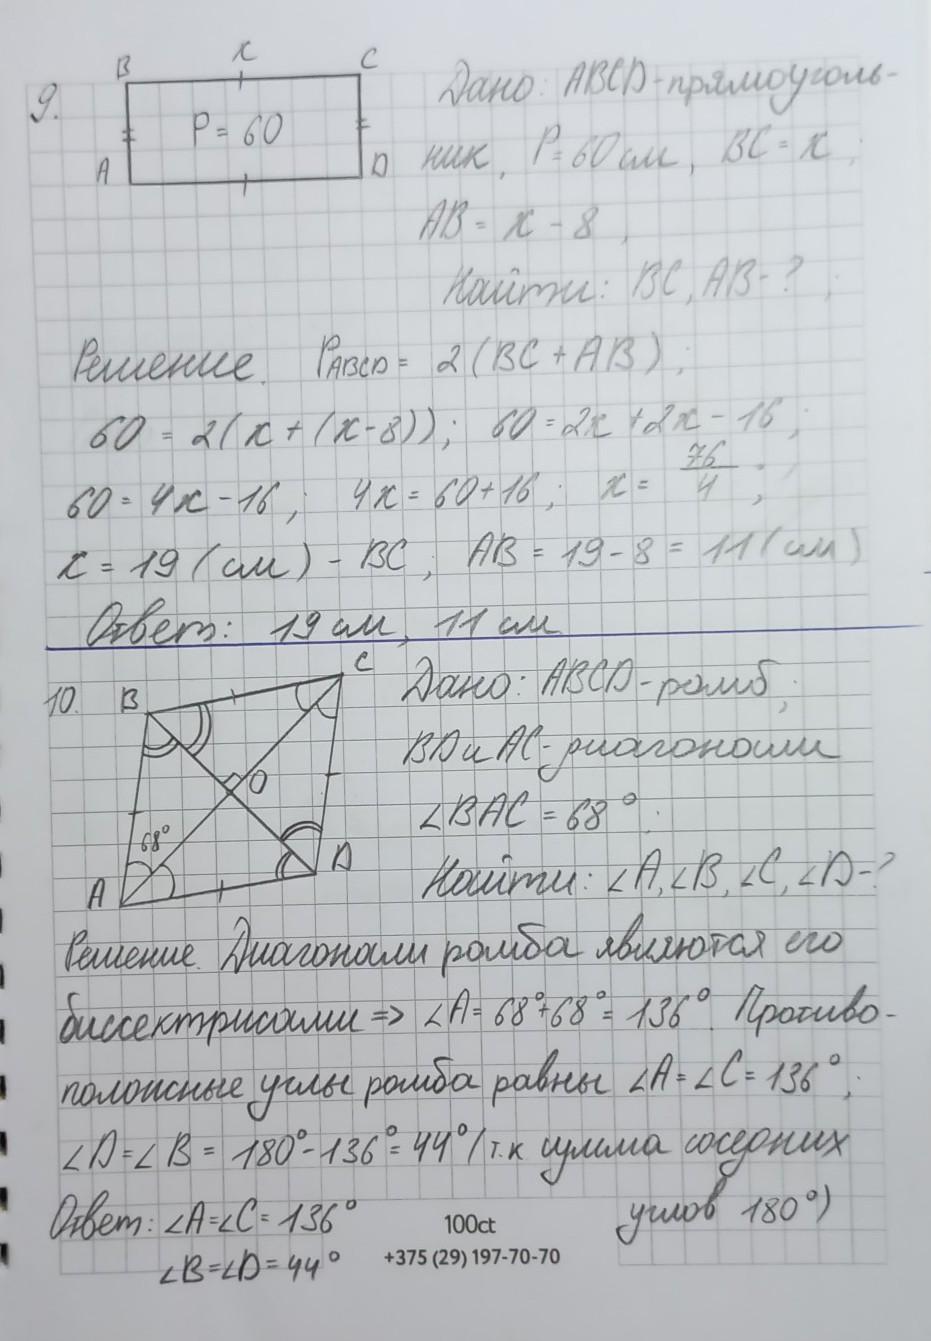 9.
B x C
P = 60
A D
Дано: ABCD-прямоуголь-
ник, P=60 см, BC = x;
AB = x - 8,
Найти: BC, AB-?;
Решение. PABCD = 2(BC + AB);
60 = 2(x + (x-8)); 60 = 2x + 2x - 16;
60 = 4x - 16; 4x = 60+16; x = 76/4;
x = 19 (см) - BC; AB = 19 - 8 = 11 (см)
Ответ: 19 см, 11 см
10.
B C
O
68°
A D
Дано: ABCD-ромб;
BD и AC-диагонали
∠BAC = 68°;
Найти: ∠A, ∠B, ∠C, ∠D-?
Решение. Диагонали ромба являются его
биссектрисами => ∠A = 68°+68° = 136°. Противо-
положные углы ромба равны ∠A = ∠C = 136°;
∠D = ∠B = 180° - 136° = 44° (т.к сумма соседних
углов 180°)
Ответ: ∠A=∠C = 136°
∠B=∠D = 44°
100ct
+375 (29) 197-70-70